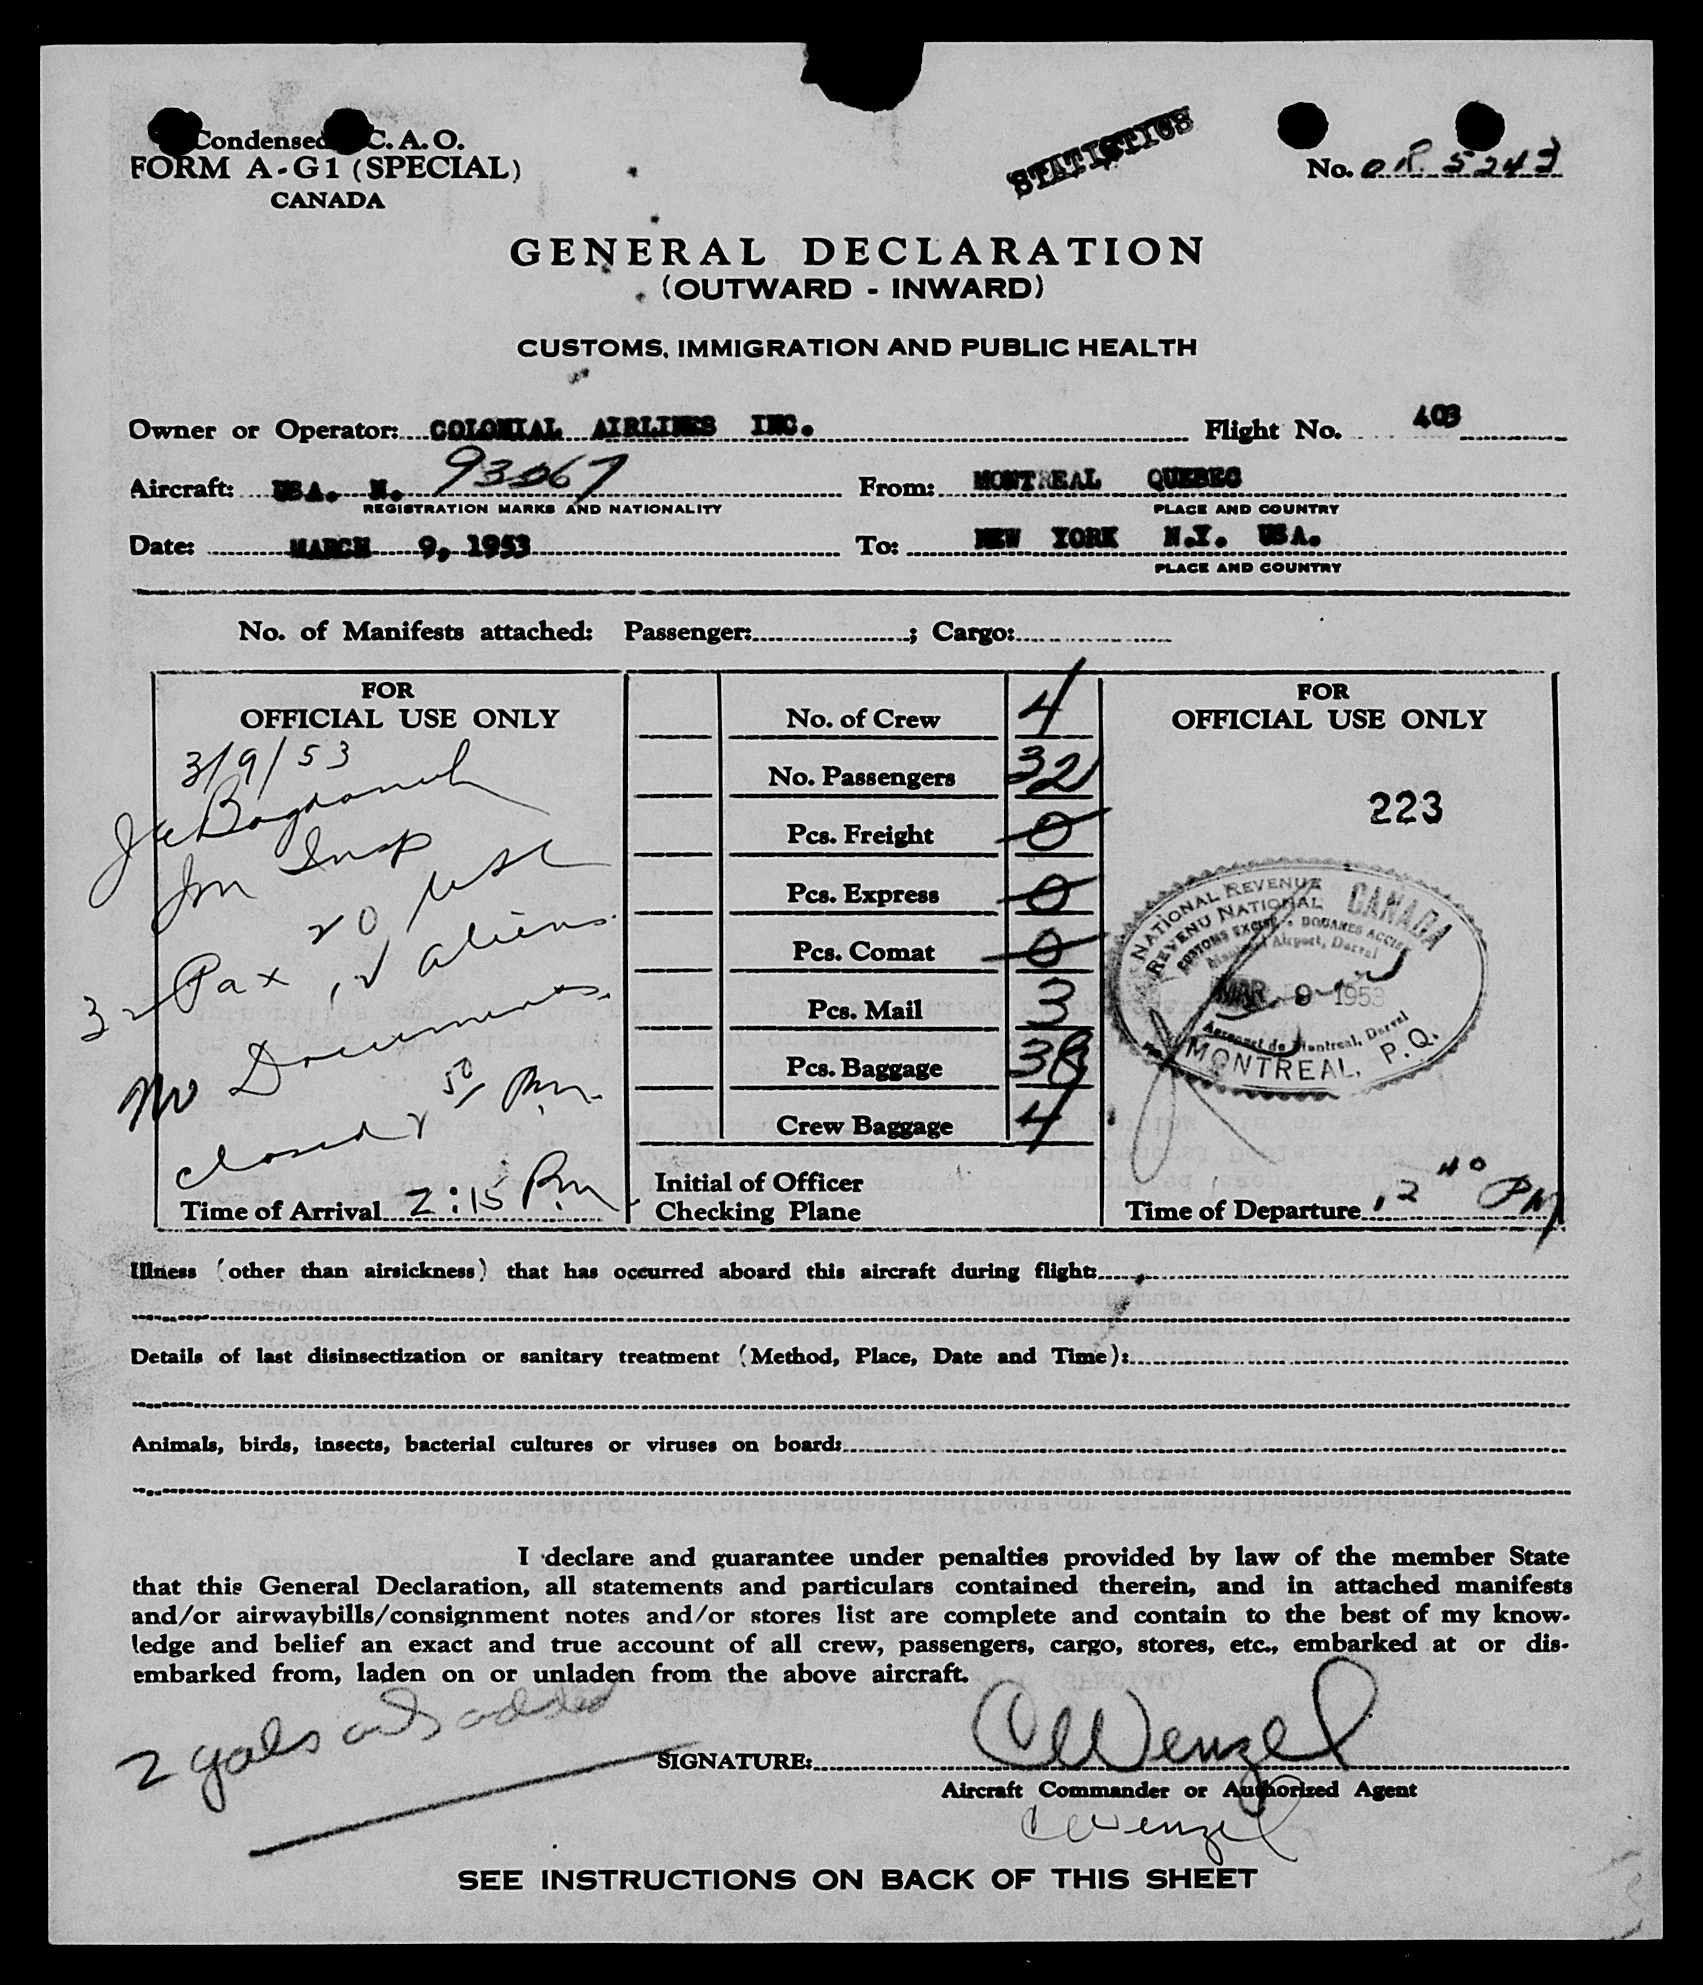 Condensed I.C.A.O.
FORM A-G1 (SPECIAL)
CANADA
STATISTICS
No. OR 5243
GENERAL DECLARATION
(OUTWARD - INWARD)
CUSTOMS, IMMIGRATION AND PUBLIC HEALTH
Owner or Operator: COLONIAL AIRLINES INC. Flight No. 403
Aircraft: USA. N. 93067 From: MONTREAL QUEBEC
REGISTRATION MARKS AND NATIONALITY PLACE AND COUNTRY
Date: MARCH 9, 1953 To: NEW YORK N.Y. USA.
PLACE AND COUNTRY
No. of Manifests attached: Passenger: ; Cargo:
FOR
OFFICIAL USE ONLY
3/9/53
Im Insp
20 USC
32 Pax 12 aliens
No Documents
closed 2 50 Pm.
Time of Arrival 2:15 Pm
No. of Crew 4
No. Passengers 32
Pcs. Freight 0
Pcs. Express 0
Pcs. Comat 0
Pcs. Mail 3
Pcs. Baggage 38
Crew Baggage 4
Initial of Officer
Checking Plane
FOR
OFFICIAL USE ONLY
223
NATIONAL REVENUE CANADA
REVENU NATIONAL
CUSTOMS EXCISE DOUANES ACCISE
Montreal Airport, Dorval
MAR 9 1953
Aeroport de Montreal, Dorval
MONTREAL, P.Q.
Time of Departure 12 40 PM
Illness (other than airsickness) that has occurred aboard this aircraft during flight:
Details of last disinsectization or sanitary treatment (Method, Place, Date and Time):
Animals, birds, insects, bacterial cultures or viruses on board:
I declare and guarantee under penalties provided by law of the member State
that this General Declaration, all statements and particulars contained therein, and in attached manifests
and/or airwaybills/consignment notes and/or stores list are complete and contain to the best of my know-
ledge and belief an exact and true account of all crew, passengers, cargo, stores, etc., embarked at or dis-
embarked from, laden on or unladen from the above aircraft.
2 gals added
SIGNATURE: C Wenzel
Aircraft Commander or Authorized Agent
C Wenzel
SEE INSTRUCTIONS ON BACK OF THIS SHEET